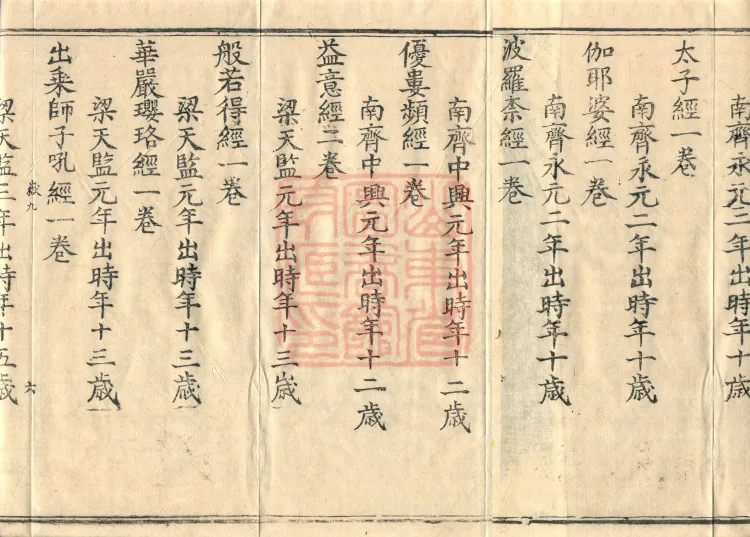 南齊永元二年出時年十歲
太子經一卷
南齊永元二年出時年十歲
伽耶婆經一卷
南齊永元二年出時年十歲
波羅柰經一卷
南齊中興元年出時年十二歲
優婁頻經一卷
南齊中興元年出時年十二歲
益意經二卷
梁天監元年出時年十三歲
般若得經一卷
梁天監元年出時年十三歲
華嚴瓔珞經一卷
梁天監元年出時年十三歲
出乘師子吼經一卷
嶽九 六
梁天監三年出時年十五歲
山東省
圖書館